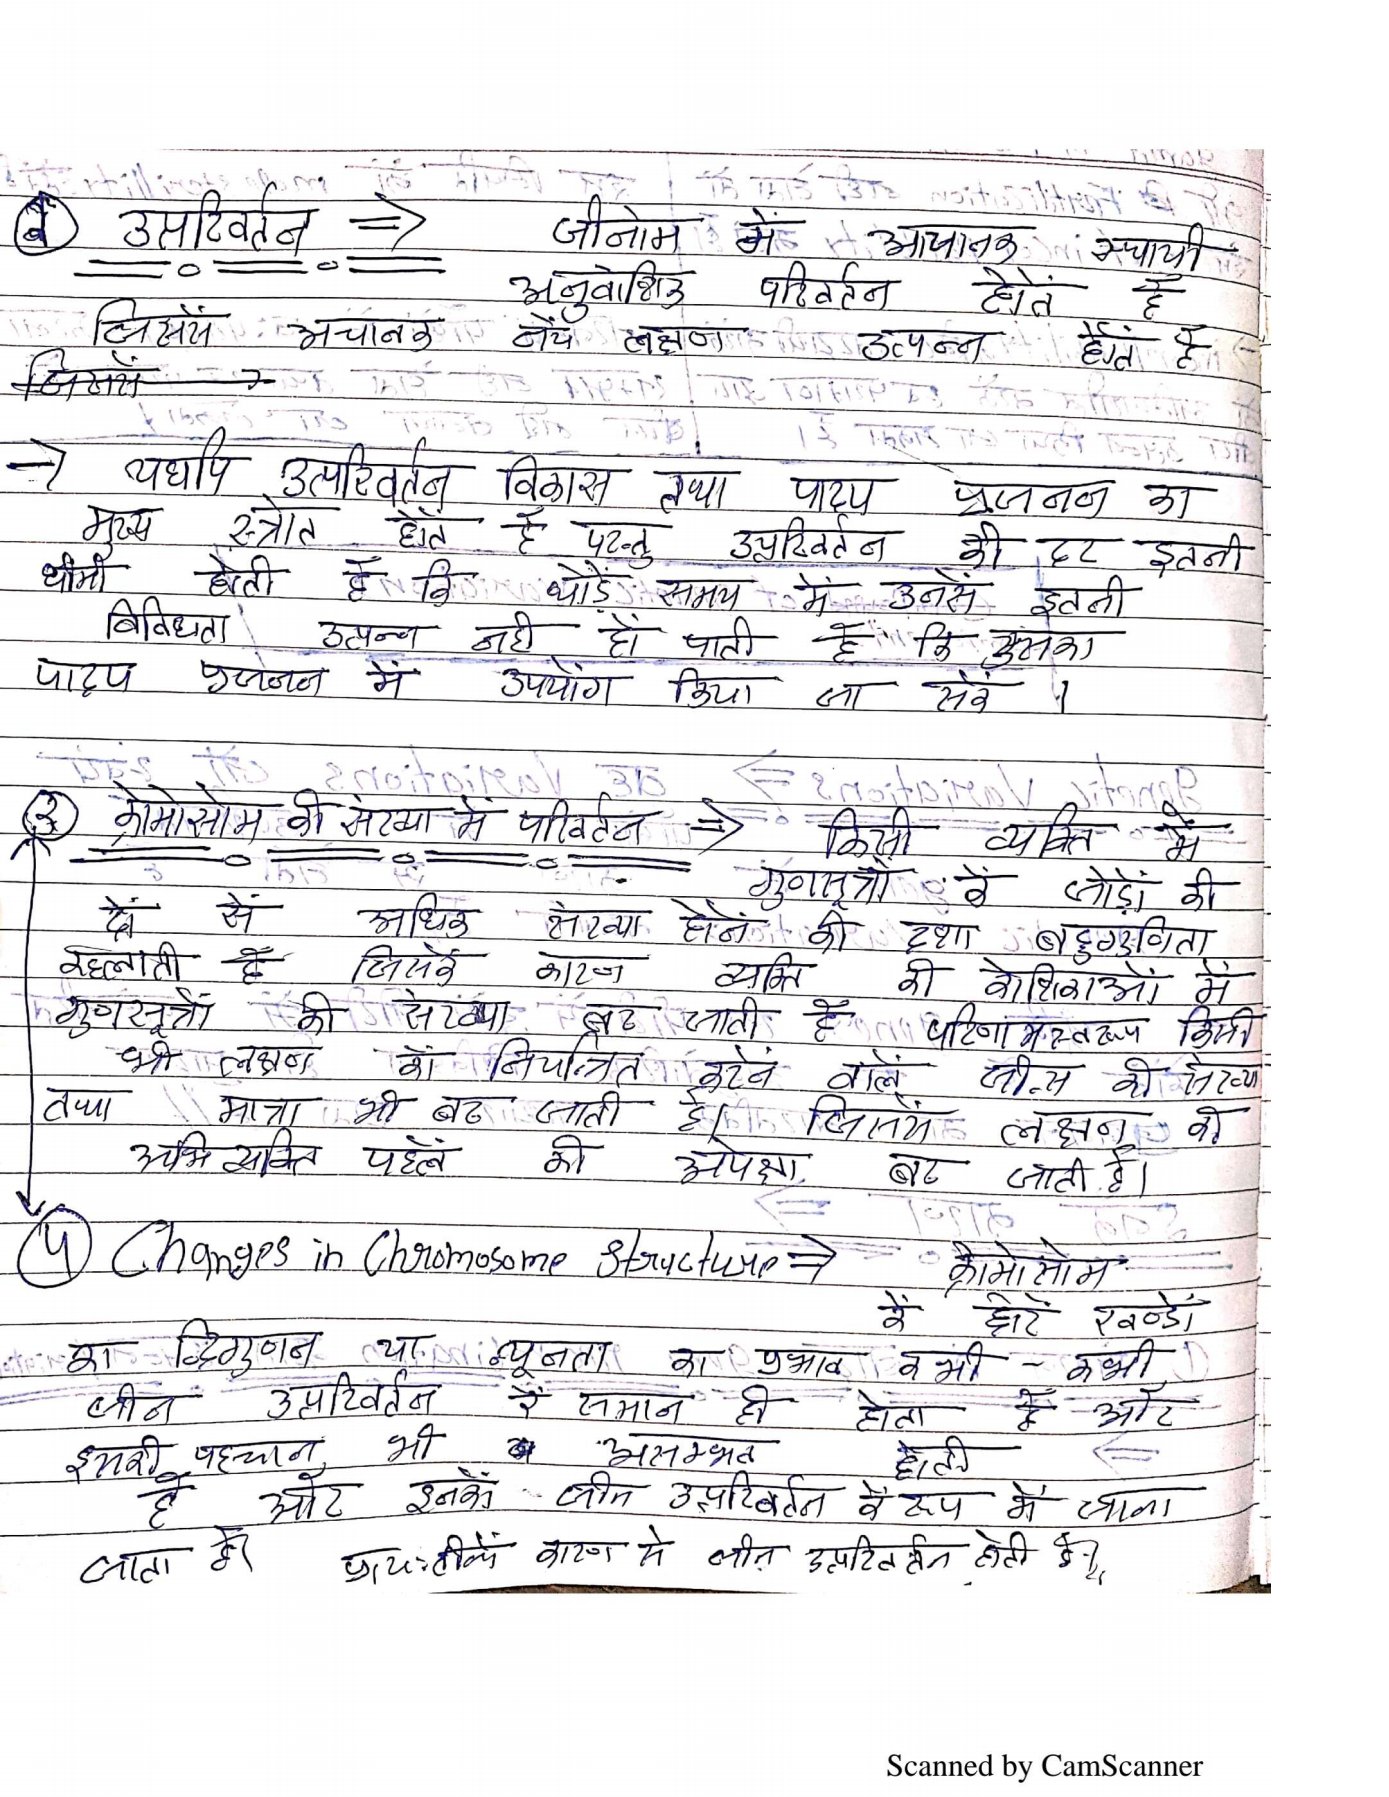 उत्परिवर्तन ⇒ जीनोम में आचानक स्थायी
अनुवांशिक परिवर्तन होतें हैं
जिससें अचानक नयें लक्षण उत्पन्न होतें है
जिससें →
→ यधपि उत्परिवर्तन विकास तथा पादप प्रजनन का
मुख्य स्त्रोत होतें हैं परन्तु उत्परिवर्तन की दर इतनी
धीमी होती हैं कि थोड़ें समय में उनसें इतनी
विविधता उत्पन्न नही हों पाती हैं कि उसका
पादप प्रजनन में उपयोंग किया जा सकें ।
③ क्रोमोसोम की संख्या में परिवर्तन ⇒ किसी व्यक्ति में
गुणसूत्रों कें जोड़ों की
दों सें अधिक संख्या होनें की दशा बहुगुणिता
कहलाती हैं जिसकें कारण व्यक्ति की कोशिकाओं में
गुणसूत्रों की संख्या बढ जाती हैं परिणामस्वरूप किसी
भी लक्षण कों नियन्त्रित करनें वालें जीन्स की संख्या
तथा मात्रा भी बढ जाती है। जिससें लक्षण की
अभिव्यक्ति पहलें की अपेक्षा बढ जाती है।
④ Changes in Chromosome Structure ⇒ क्रोमोसोम
कें छोटें खण्डों
का द्विगुणन या न्यूनता का प्रभाव कभी - कभी
जीन उत्परिवर्तन कें समान ही होता हैं और
इसकी पहचान भी असम्भव होती
हैं और इनकों जीन उत्परिवर्तन कें रूप में जाना
जाता है। कारण से जीन उत्परिवर्तन होती है।
Scanned by CamScanner